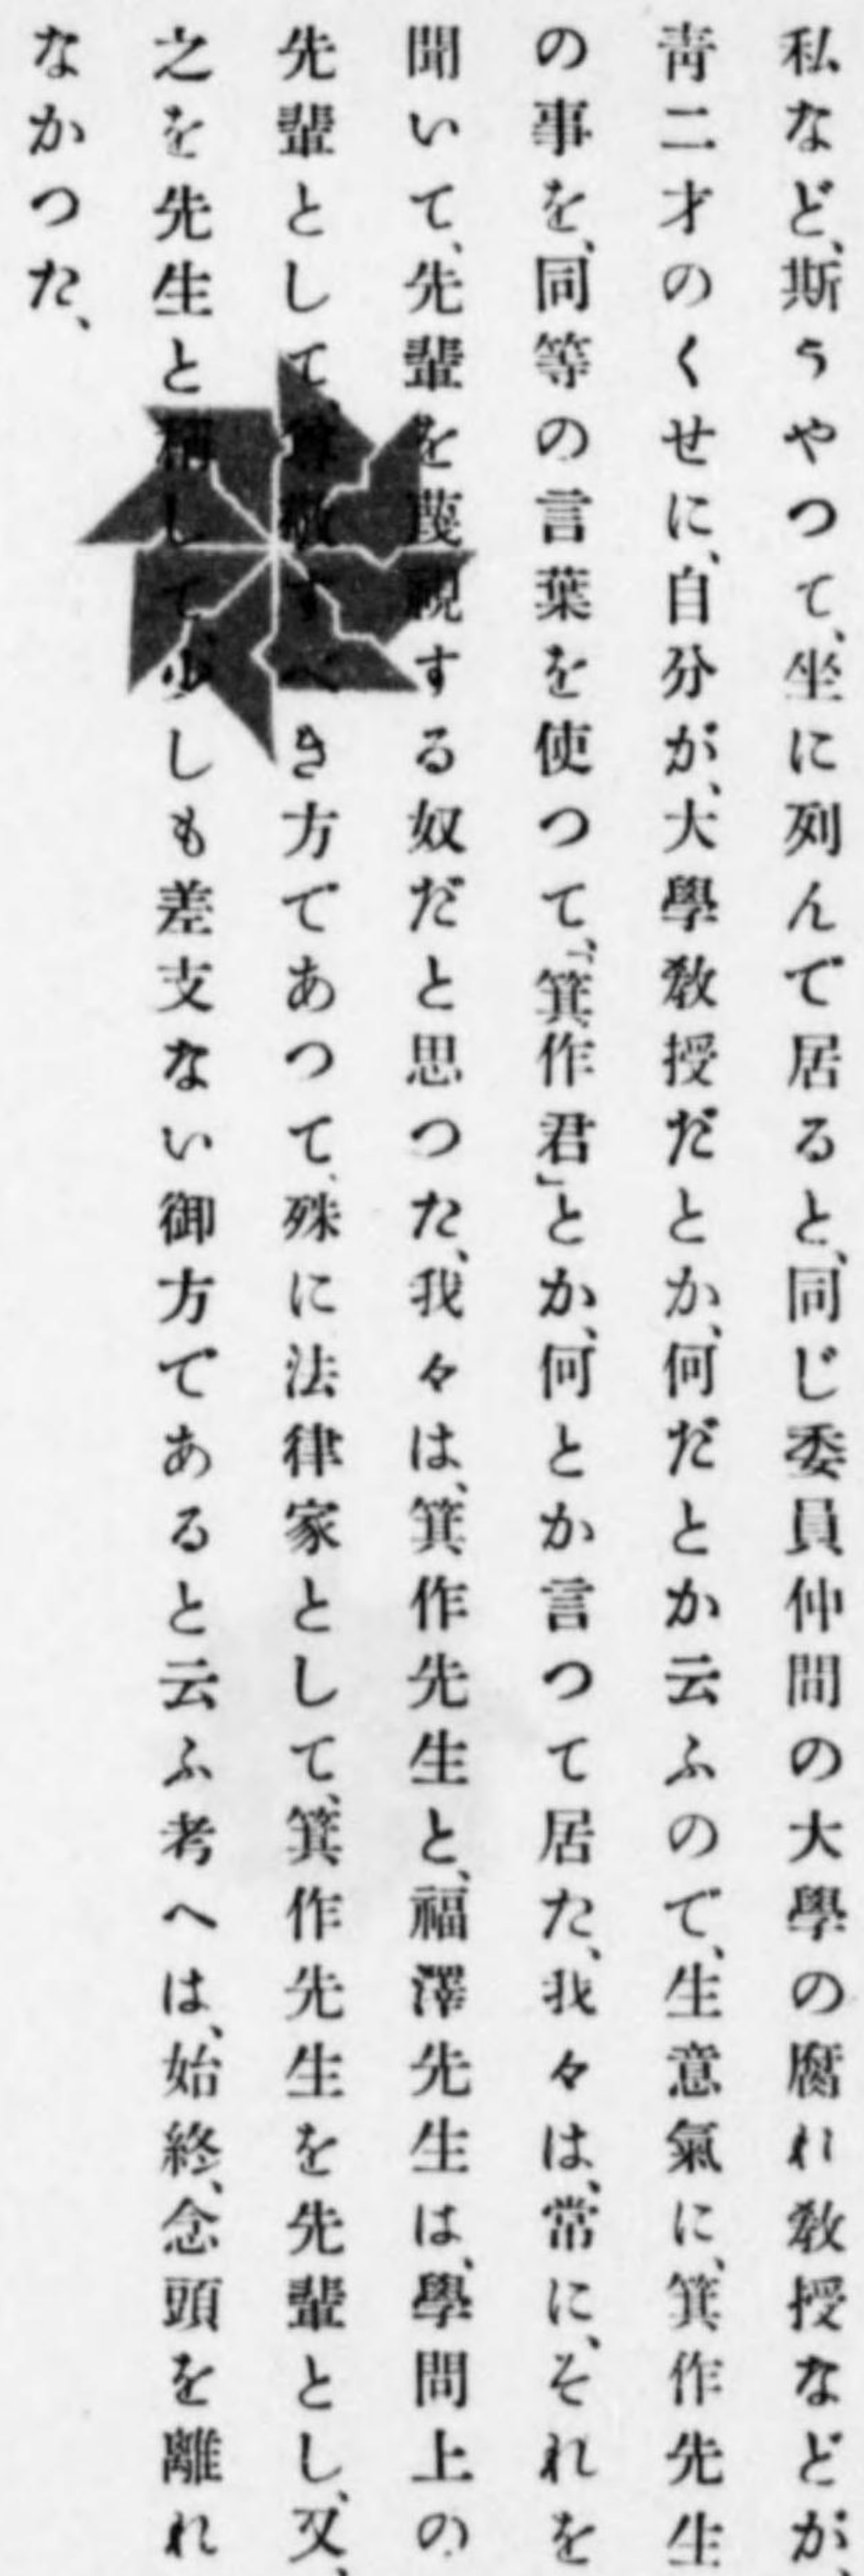 私など、斯うやつて、坐に列んで居ると、同じ委員仲間の大學の腐れ教授などが、
靑二才のくせに、自分が、大學教授だとか、何だとか云ふので、生意氣に、箕作先生
の事を、同等の言葉を使つて、「箕作君」とか、何とか言つて居た、我々は、常に、それを
聞いて、先輩を蔑視する奴だと思つた、我々は、箕作先生と、福澤先生は、學問上の
先輩として、尊敬すべき方であつて、殊に法律家として、箕作先生を先輩とし、又、
之を先生と稱して、少しも差支ない御方であると云ふ考へは、始終、念頭を離れ
なかつた、